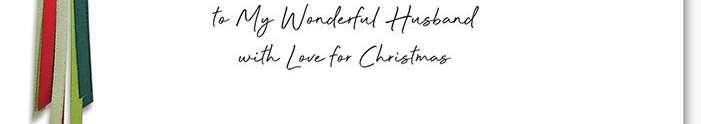 to My Wonderful Husband
with Love for Christmas